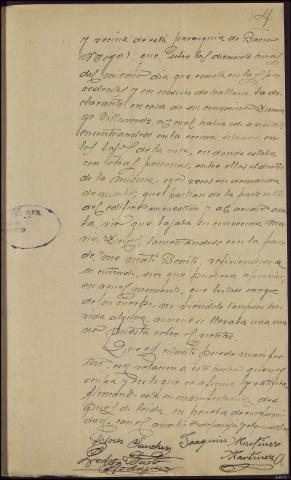 4
y vecina de esta parroquia de Barro
que, sobre las diecisiete horas
del mismo dia que consta en las pre
cedentes y en ocasion de hallarse la de
clarante en casa de su convecino Domin
go Villaverde, al cual habia ido a visitar
encontrándose en la cocina, situada en
los bajos de la casa, en donde estaba
con otras personas, entre ellas el dueño
de la misma, oyó voces en demanda
de auxilio, que partian de la parte alta
del edificio en cuestion y al acudir
vio que bajaba su convecina Ma
ria lamentándose con la frase
de, me mató Benito, refiriendose a
su cuñado, sin que pudiera apreciar
en aquel momento, que echase sangre
de su cuerpo, no viéndole tampoco he
rida alguna, aunque si llevaba una ma
no puesta sobre el vientre.
Que es cuanto puede manifes
tar, con relacion a este hecho que nos
ocupa y en lo que se afirma y ratifica
firmando esta su manifestacion des
pués de leida, en prueba de conformi
dad, con el
Dolores Sanchez Joaquin Martinez
Martinez